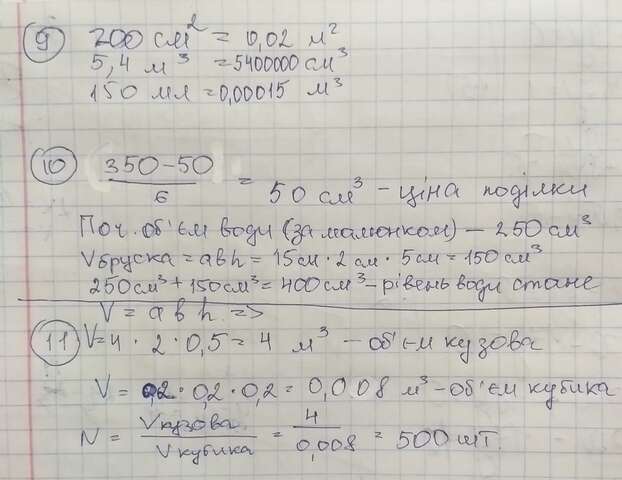 9 200 см² = 0,02 м²
5,4 м³ = 5400000 см³
150 мл = 0,00015 м³
10 (350-50)/6 = 50 см³ - ціна поділки
Поч. об'єм води (за малюнком) - 250 см³
Vбруска = abh = 15см · 2см · 5см = 150 см³
250см³ + 150см³ = 400см³ - рівень води стане
V = abh =>
11 V = 4 · 2 · 0,5 = 4 м³ - об'єм кузова
V = 0,2 · 0,2 · 0,2 = 0,008 м³ - об'єм кубика
N = Vкузова/Vкубика = 4/0,008 = 500 шт.